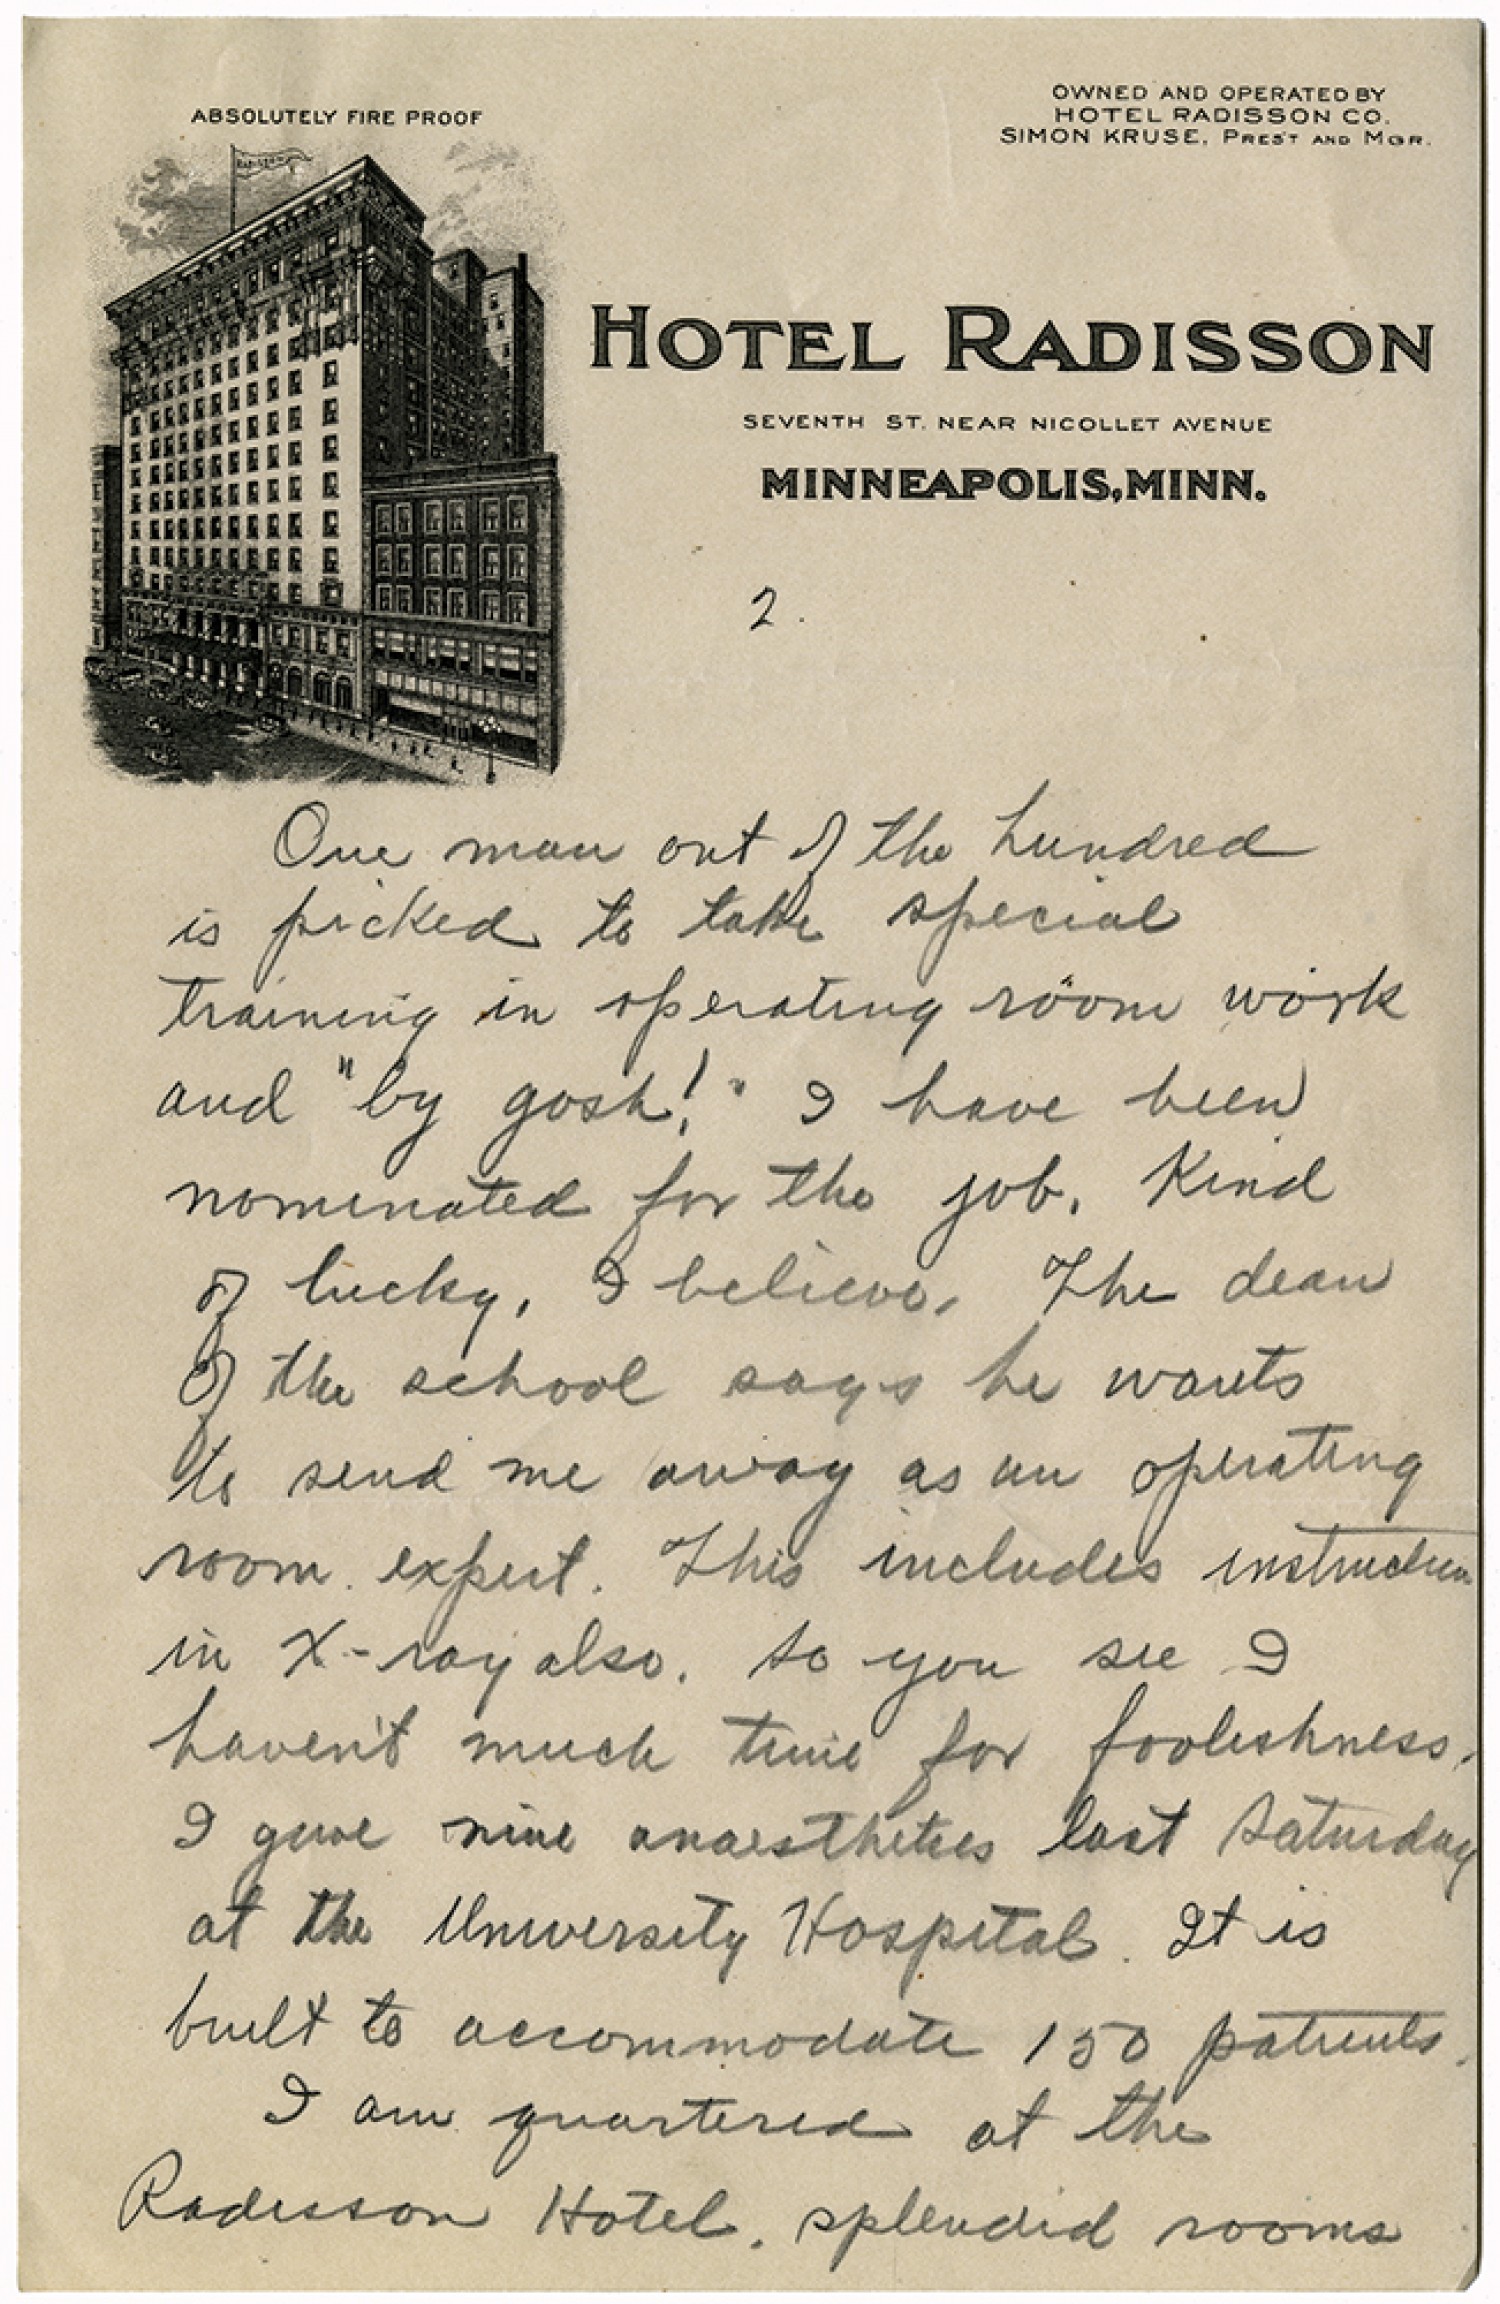 ABSOLUTELY FIRE PROOF
OWNED AND OPERATED BY
HOTEL RADISSON CO.
SIMON KRUSE, PRES'T AND MGR.
RADISSON
HOTEL RADISSON
SEVENTH ST. NEAR NICOLLET AVENUE
MINNEAPOLIS, MINN.
2.
One man out of the hundred
is picked to take special
training in operating room work
and "by gosh!" I have been
nominated for the job. Kind
of lucky, I believe. The dean
of the school says he wants
to send me away as an operating
room expert. This includes instruction
in X-ray also. So you see I
haven't much time for foolishness.
I gave nine anaesthetics last Saturday
at the University Hospital. It is
built to accommodate 150 patients.
I am quartered at the
Radisson Hotel, splendid rooms